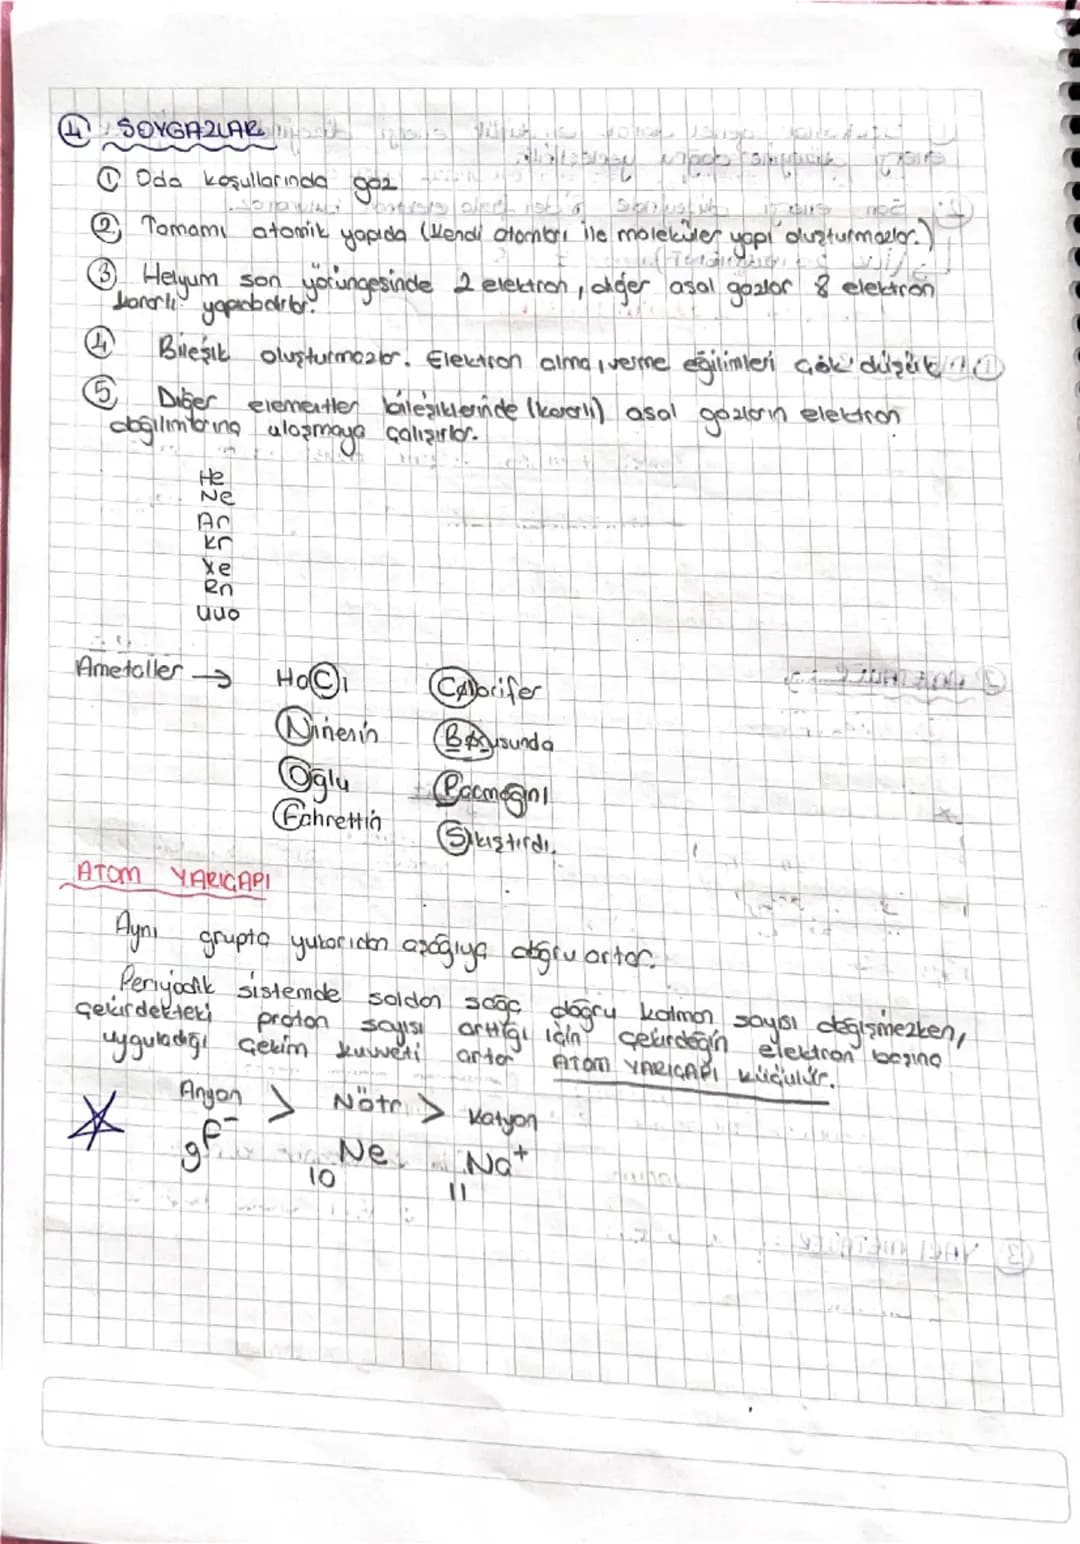 ④ SOYGAZLAR
① Oda koşullarında gaz
② Tamamı atomik yapıda (Kendi atomları ile moleküler yapı oluşturmazlar.)
③ Helyum son yörüngesinde 2 elektron, diğer asal gazlar 8 elektron
kararlı yapıdadırlar.
④ Bileşik oluşturmazlar. Elektron alma, verme eğilimleri çok düşük
⑤ Diğer elementler bileşiklerinde (kararlı) asal gazların elektron
dağılımlarına ulaşmaya çalışırlar.
He
Ne
Ar
Kr
Xe
Rn
Uuo
Ametaller → HaCı Calorifer
Ninenin Borusunda
Oğlu Parmağını
Fahrettin Sıkıştırdı.
ATOM YARIÇAPI
Aynı grupta yukarıdan aşağıya doğru artar.
Periyodik sistemde soldan sağa doğru katman sayısı değişmezken,
çekirdekteki proton sayısı arttığı için çekirdeğin elektron başına
uyguladığı çekim kuvveti artar ATOM YARIÇAPI küçülür.
Anyon > Nötr > Katyon
9F⁻ 10Ne 11Na⁺